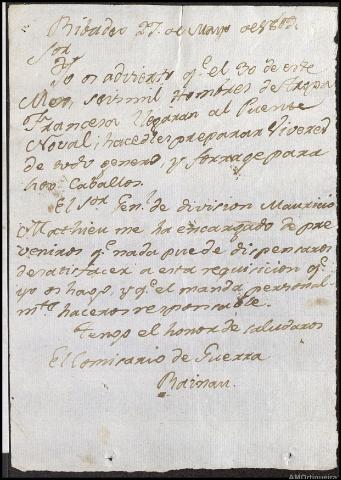 Ribadeo 27. de Mayo de
Sor
Yo os advierto q.e el 30 de este
Mes, seis mil hombres de tropa
Francesa llegaran al Puente
Noval; haced les preparar Viveres
de todo genero, y forrage para
Caballos.
El Sor Gen.l de division Mauricio
Mathieu me ha encargado de pre
veniros q.e nada puede dispensaros
de satisfacer a esta requisicion q.e
yo os hago, y q.e el manda personal-
m.te haceros responsable.
Tengo el honor de saludaros
El Comisario de Guerra
AMOrtigueira